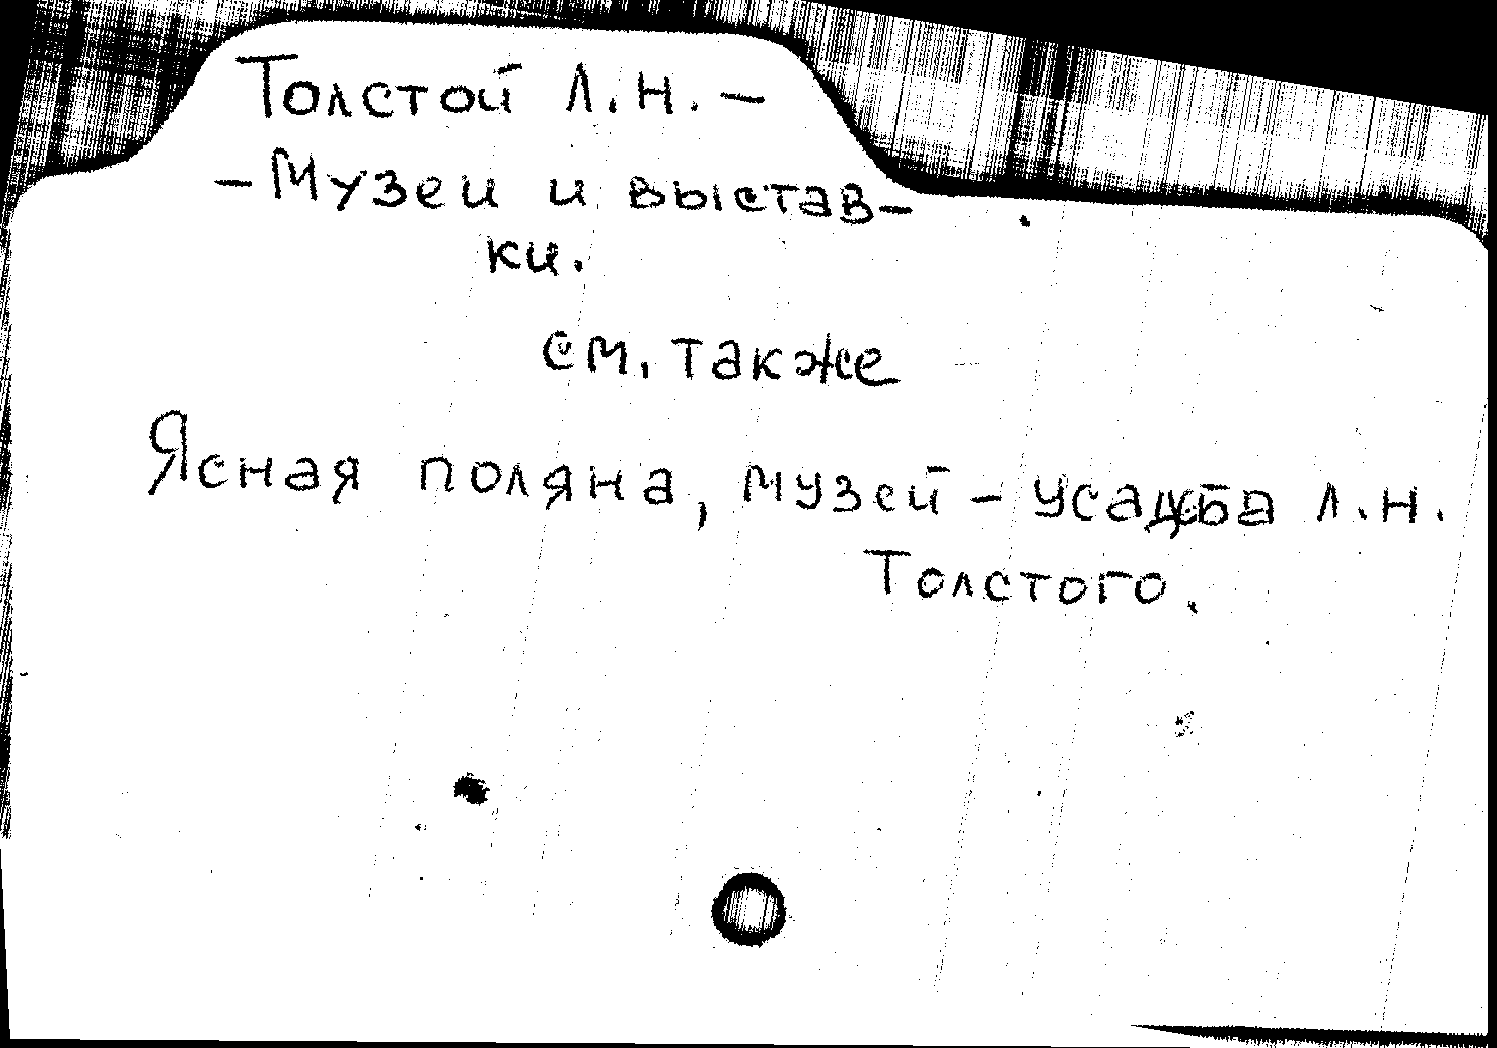 Толстой Л.Н. –
– Музеи и выстав–
ки.
см. также
Ясная поляна, музей – усадьба Л.Н.
Толстого.